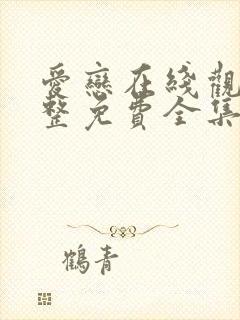 愛戀在綫觀
整免費全集
鶴青